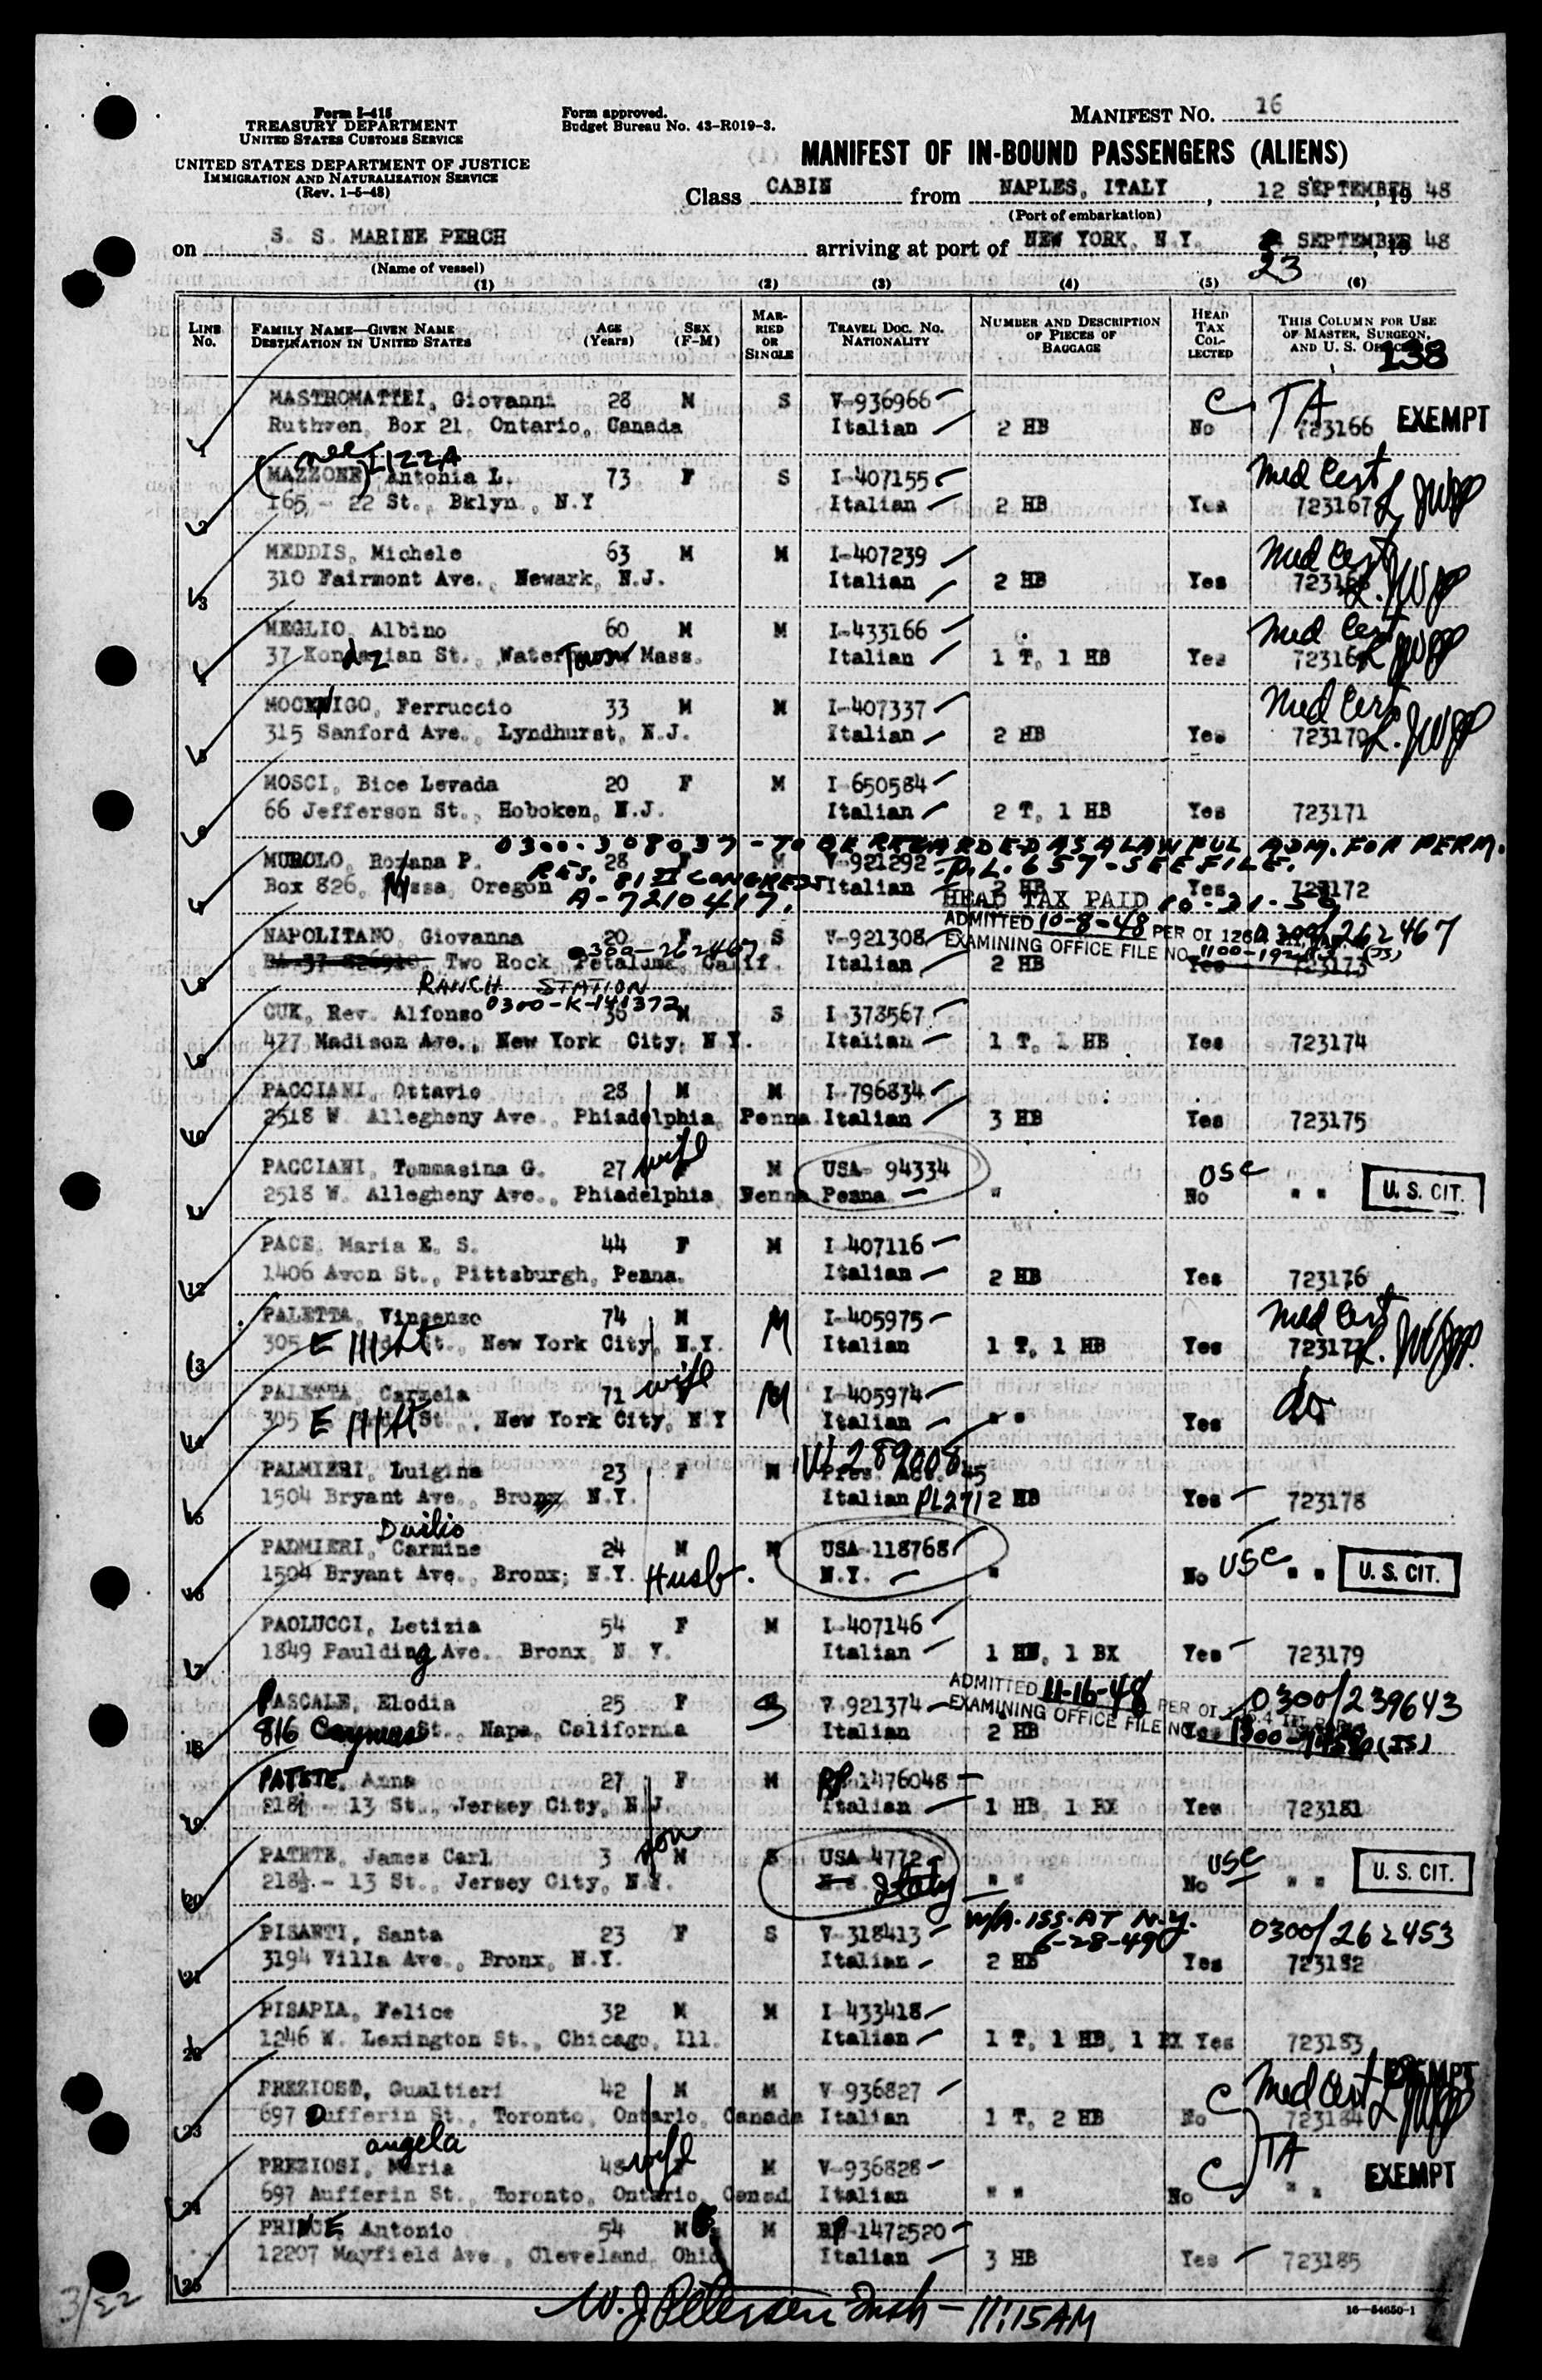 Form I-415
TREASURY DEPARTMENT
UNITED STATES CUSTOMS SERVICE
UNITED STATES DEPARTMENT OF JUSTICE
IMMIGRATION AND NATURALIZATION SERVICE
(Rev. 1-5-48)
Form approved.
Budget Bureau No. 43-R019-3.
MANIFEST NO. 16
MANIFEST OF IN-BOUND PASSENGERS (ALIENS)
Class CABIN from NAPLES, ITALY, 12 SEPTEMBER, 19 48
(Port of embarkation)
on S. S. MARINE PERCH arriving at port of NEW YORK, N.Y. SEPTEMBER, 19 48
23
(Name of vessel)
(1) (2) (3) (4) (5) (6)
LINE No.
FAMILY NAME—GIVEN NAME
DESTINATION IN UNITED STATES
AGE (Years)
SEX (F-M)
MARRIED OR SINGLE
TRAVEL DOC. NO.
NATIONALITY
NUMBER AND DESCRIPTION OF PIECES OF BAGGAGE
HEAD TAX COLLECTED
THIS COLUMN FOR USE OF MASTER, SURGEON, AND U. S. OFFICERS
138
MASTROMATTEI, Giovanni 28 M S V-936966 C TA
1 Ruthven, Box 21, Ontario, Canada Italian 2 HB No 723166 EXEMPT
nee I122A
(MAZZONE) Antonia L. 73 F S I-407155 Med Cert
2 165 - 22 St., Bklyn., N.Y Italian 2 HB Yes 723167
MEDDIS, Michele 63 M M I-407239 Med Cert
3 310 Fairmont Ave., Newark, N.J. Italian 2 HB Yes
MEGLIO, Albino 60 M M I-433166 Med Cert
4 37 St., Watertown Mass. Italian 1 T, 1 HB Yes
MOCENIGO, Ferruccio 33 M M I-407337 Med Cert
5 315 Sanford Ave., Lyndhurst, N.J. Italian 2 HB Yes 723170
MOSCI, Bice Levada 20 F M I-650584
6 66 Jefferson St., Hoboken, N.J. Italian 2 T, 1 HB Yes 723171
0300-308037 - TO BE REGARDED AS A LAWFUL ADM. FOR PERM.
MUROLO, Rozana P. 28 F M V-921292 P.L. 657 - SEE FILE.
RES. 81 II CONGRESS
7 Box 826, Nyssa, Oregon Italian 2 HB Yes 723172
A-7210417. HEAD TAX PAID 10-21-50
NAPOLITANO, Giovanna 20 F S V-921308 ADMITTED 10-8-48 PER OI 126 0300/262467
0300-262467 EXAMINING OFFICE FILE NO. (IS)
8 Two Rock Petaluma, Calif. Italian 2 HB Yes 723173
RANCH STATION
0300-K-141372
CUK, Rev. Alfonso 36 M S I-378567
9 477 Madison Ave., New York City, N.Y. Italian 1 T, 1 HB Yes 723174
PACCIANI, Ottavio 28 M M I-796834
10 2518 W. Allegheny Ave., Phiadelphia, Penna. Italian 3 HB Yes 723175
PACCIANI, Tommasina G. 27 wife M USA- 94334 USC
11 2518 W. Allegheny Ave., Phiadelphia Penna Penna " No " " U. S. CIT.
PACE, Maria E. S. 44 F M I-407116
12 1406 Avon St., Pittsburgh, Penna. Italian 2 HB Yes 723176
PALETTA, Vincenzo 74 M M I-405975 Med Cert
13 305 E 111 St., New York City, N.Y. Italian 1 T, 1 HB Yes 723177
PALETTA, Carmela 71 wife M I-405974 do
14 305 E 111 St., New York City, N.Y Italian " " Yes
VI 289008
PALMIERI, Luigina 23 F M
15 1504 Bryant Ave., Bronx, N.Y. Italian PL271 2 HB Yes 723178
Duilio
PADMIERI, Carmine 24 M M USA-118768
16 1504 Bryant Ave., Bronx; N.Y. Husb. N.Y. " No USC " " U. S. CIT.
PAOLUCCI, Letizia 54 F M I-407146
17 1849 Paulding Ave. Bronx, N. Y. Italian 1 HB, 1 BX Yes 723179
PASCALE, Elodia 25 F S V-921374 ADMITTED 11-16-48 PER OI 0300/239643
EXAMINING OFFICE FILE NO. (IS)
18 816 Caymus St., Napa, California Italian 2 HB Yes
PATETE, Anna 27 F M RP-1476048
19 218½ - 13 St., Jersey City, N.J. Italian 1 HB, 1 BX Yes 723181
PATETE, James Carl 3 son M S USA-4772 USC
20 218½ - 13 St., Jersey City, N.J. Italy " " No " " U. S. CIT.
W/A. ISS. AT N.Y. 6-28-49
PISANTI, Santa 23 F S V-318413 0300/262453
21 3194 Villa Ave., Bronx, N.Y. Italian 2 HB Yes 723182
PISAPIA, Felice 32 M M I-433418
22 1246 W. Lexington St., Chicago, Ill. Italian 1 T, 1 HB, 1 BX Yes 723183
PREZIOSI, Gualtieri 42 M M V-936827 C Med Cert EXEMPT
23 697 Dufferin St., Toronto, Ontario, Canada Italian 1 T, 2 HB No 723184
angela TA
PREZIOSI, Maria 48 wife M V-936828 C
24 697 Aufferin St., Toronto, Ontario, Canad Italian " " No " " EXEMPT
PRINCE, Antonio 54 M M RP-1472520
25 12207 Mayfield Ave., Cleveland, Ohio Italian 3 HB Yes 723185
W. J. Petersen Insp - 11:15 AM
16—54650-1
3/22